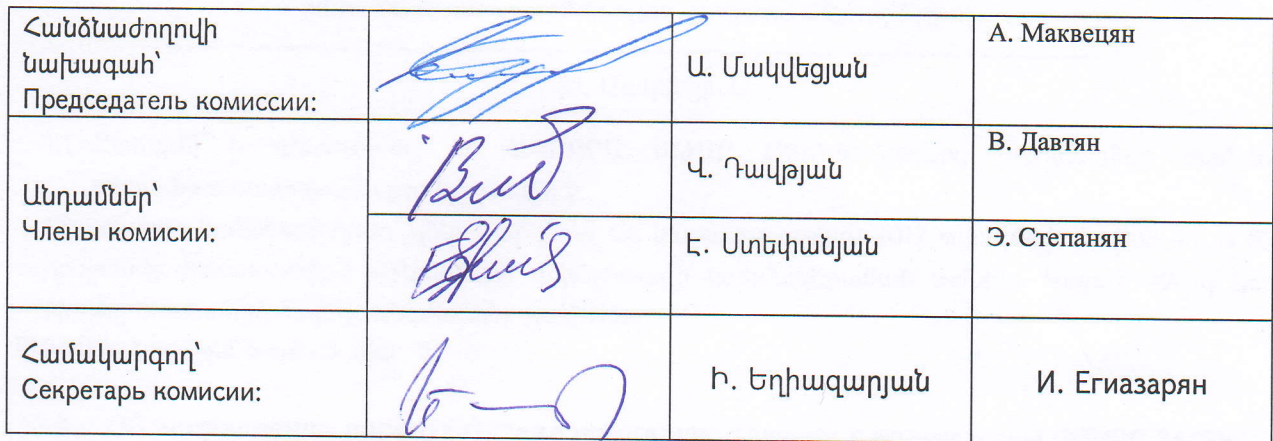 Հանձնաժողովի
նախագահ՝
Председатель комиссии:
Ա. Մակվեցյան
А. Маквецян
Անդամներ
Члены комисии:
Վ. Դավթյան
В. Давтян
Է. Ստեփանյան
Э. Степанян
Համակարգող՝
Секретарь комисии:
Ի. Եղիազարյան
И. Егиазарян